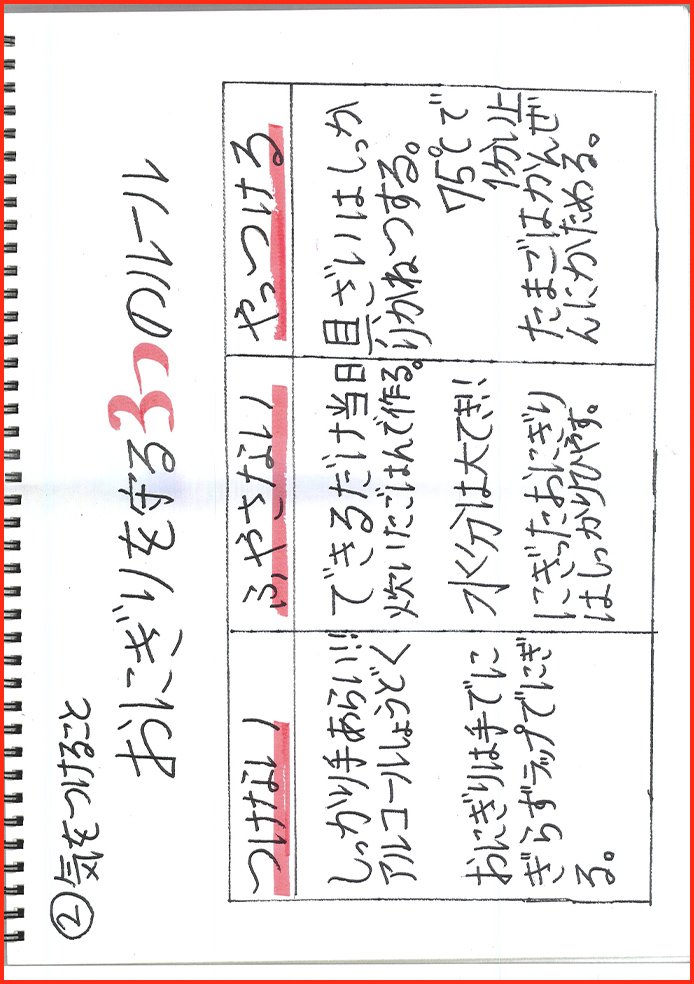 ②気をつけること
おにぎりを守る3つのルール
つけない
しっかり手あらい!!
アルコールしょうどく
おにぎりは手でに
ぎらずラップでにぎ
る。
ふやさない
できるだけ当日
炊いたごはんで作る。
水分は大てき!!
にぎったおにぎり
はしっかりひやす。
やっつける
具ざいはしっか
りかねつする。
75℃で
1分い上
たまごはかんぜ
んにかためる。